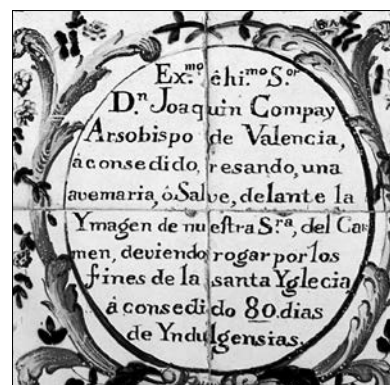 Ex.mo êhi.mo S.or
D.n Joaquin Company
Arsobispo de Valencia,
âconsedido, resando, una
avemaria, ôSalve, delante la
Ymagen de nuestra S.ra, del Car
men, deviendo rogar por los
fines de la santa Yglecia,
â consedido 80. dias
de Yndulgensias.